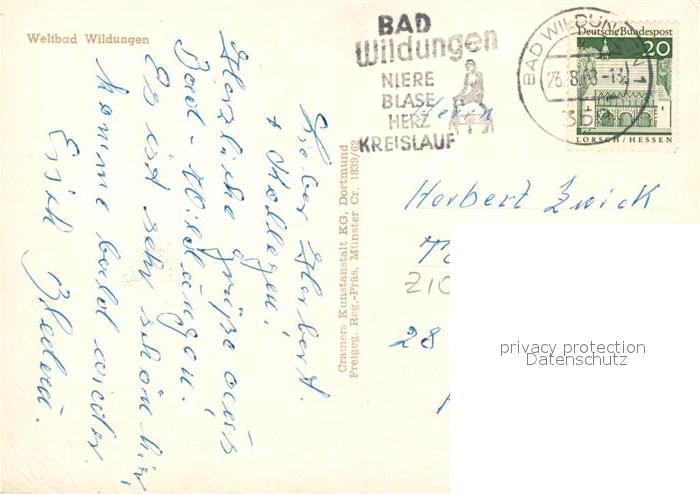 Weltbad Wildungen
BAD
Wildungen
NIERE
BLASE
HERZ
KREISLAUF
BAD WILDUNGEN 1
23.8.
-13
359
Deutsche Bundespost
20
LORSCH/HESSEN
Lieber Herbert
+ Kollegen!
Herzliche Grüße aus
Bad-Wildungen!
Es ist sehr schön hier
komme bald wieder
Erich
Cramers Kunstanstalt KG, Dortmund
Freigeg. Reg.-Präs. Münster Cr. 1839/62
Herrn
Herbert Zwick
28
privacy protection
Datenschutz